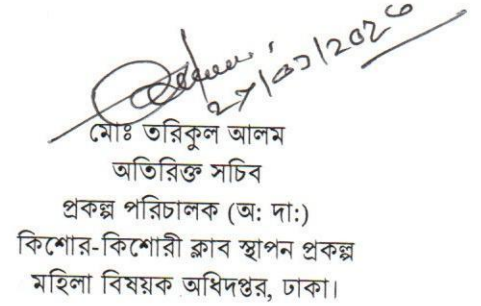 27/01/2026
মোঃ তরিকুল আলম
অতিরিক্ত সচিব
প্রকল্প পরিচালক (অ: দা:)
কিশোর-কিশোরী ক্লাব স্থাপন প্রকল্প
মহিলা বিষয়ক অধিদপ্তর, ঢাকা।